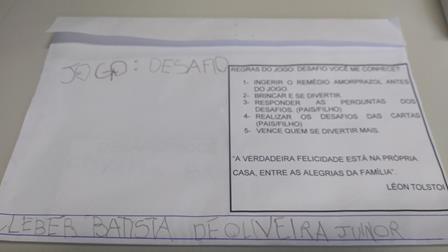 JOGO: DESAFIO
REGRAS DO JOGO: DESAFIO VOCÊ ME CONHECE?
1- INGERIR O REMÉDIO AMORPRAZOL ANTES
DO JOGO.
2- BRINCAR E SE DIVERTIR.
3- RESPONDER AS PERGUNTAS DOS
DESAFIOS. (PAIS/FILHO)
4- REALIZAR OS DESAFIOS DAS CARTAS
(PAIS/FILHO)
5- VENCE QUEM SE DIVERTIR MAIS.
"A VERDADEIRA FELICIDADE ESTÁ NA PRÓPRIA
CASA, ENTRE AS ALEGRIAS DA FAMÍLIA".
LÉON TOLSTOI
CLEBER BATISTA DE OLIVEIRA JUNIOR